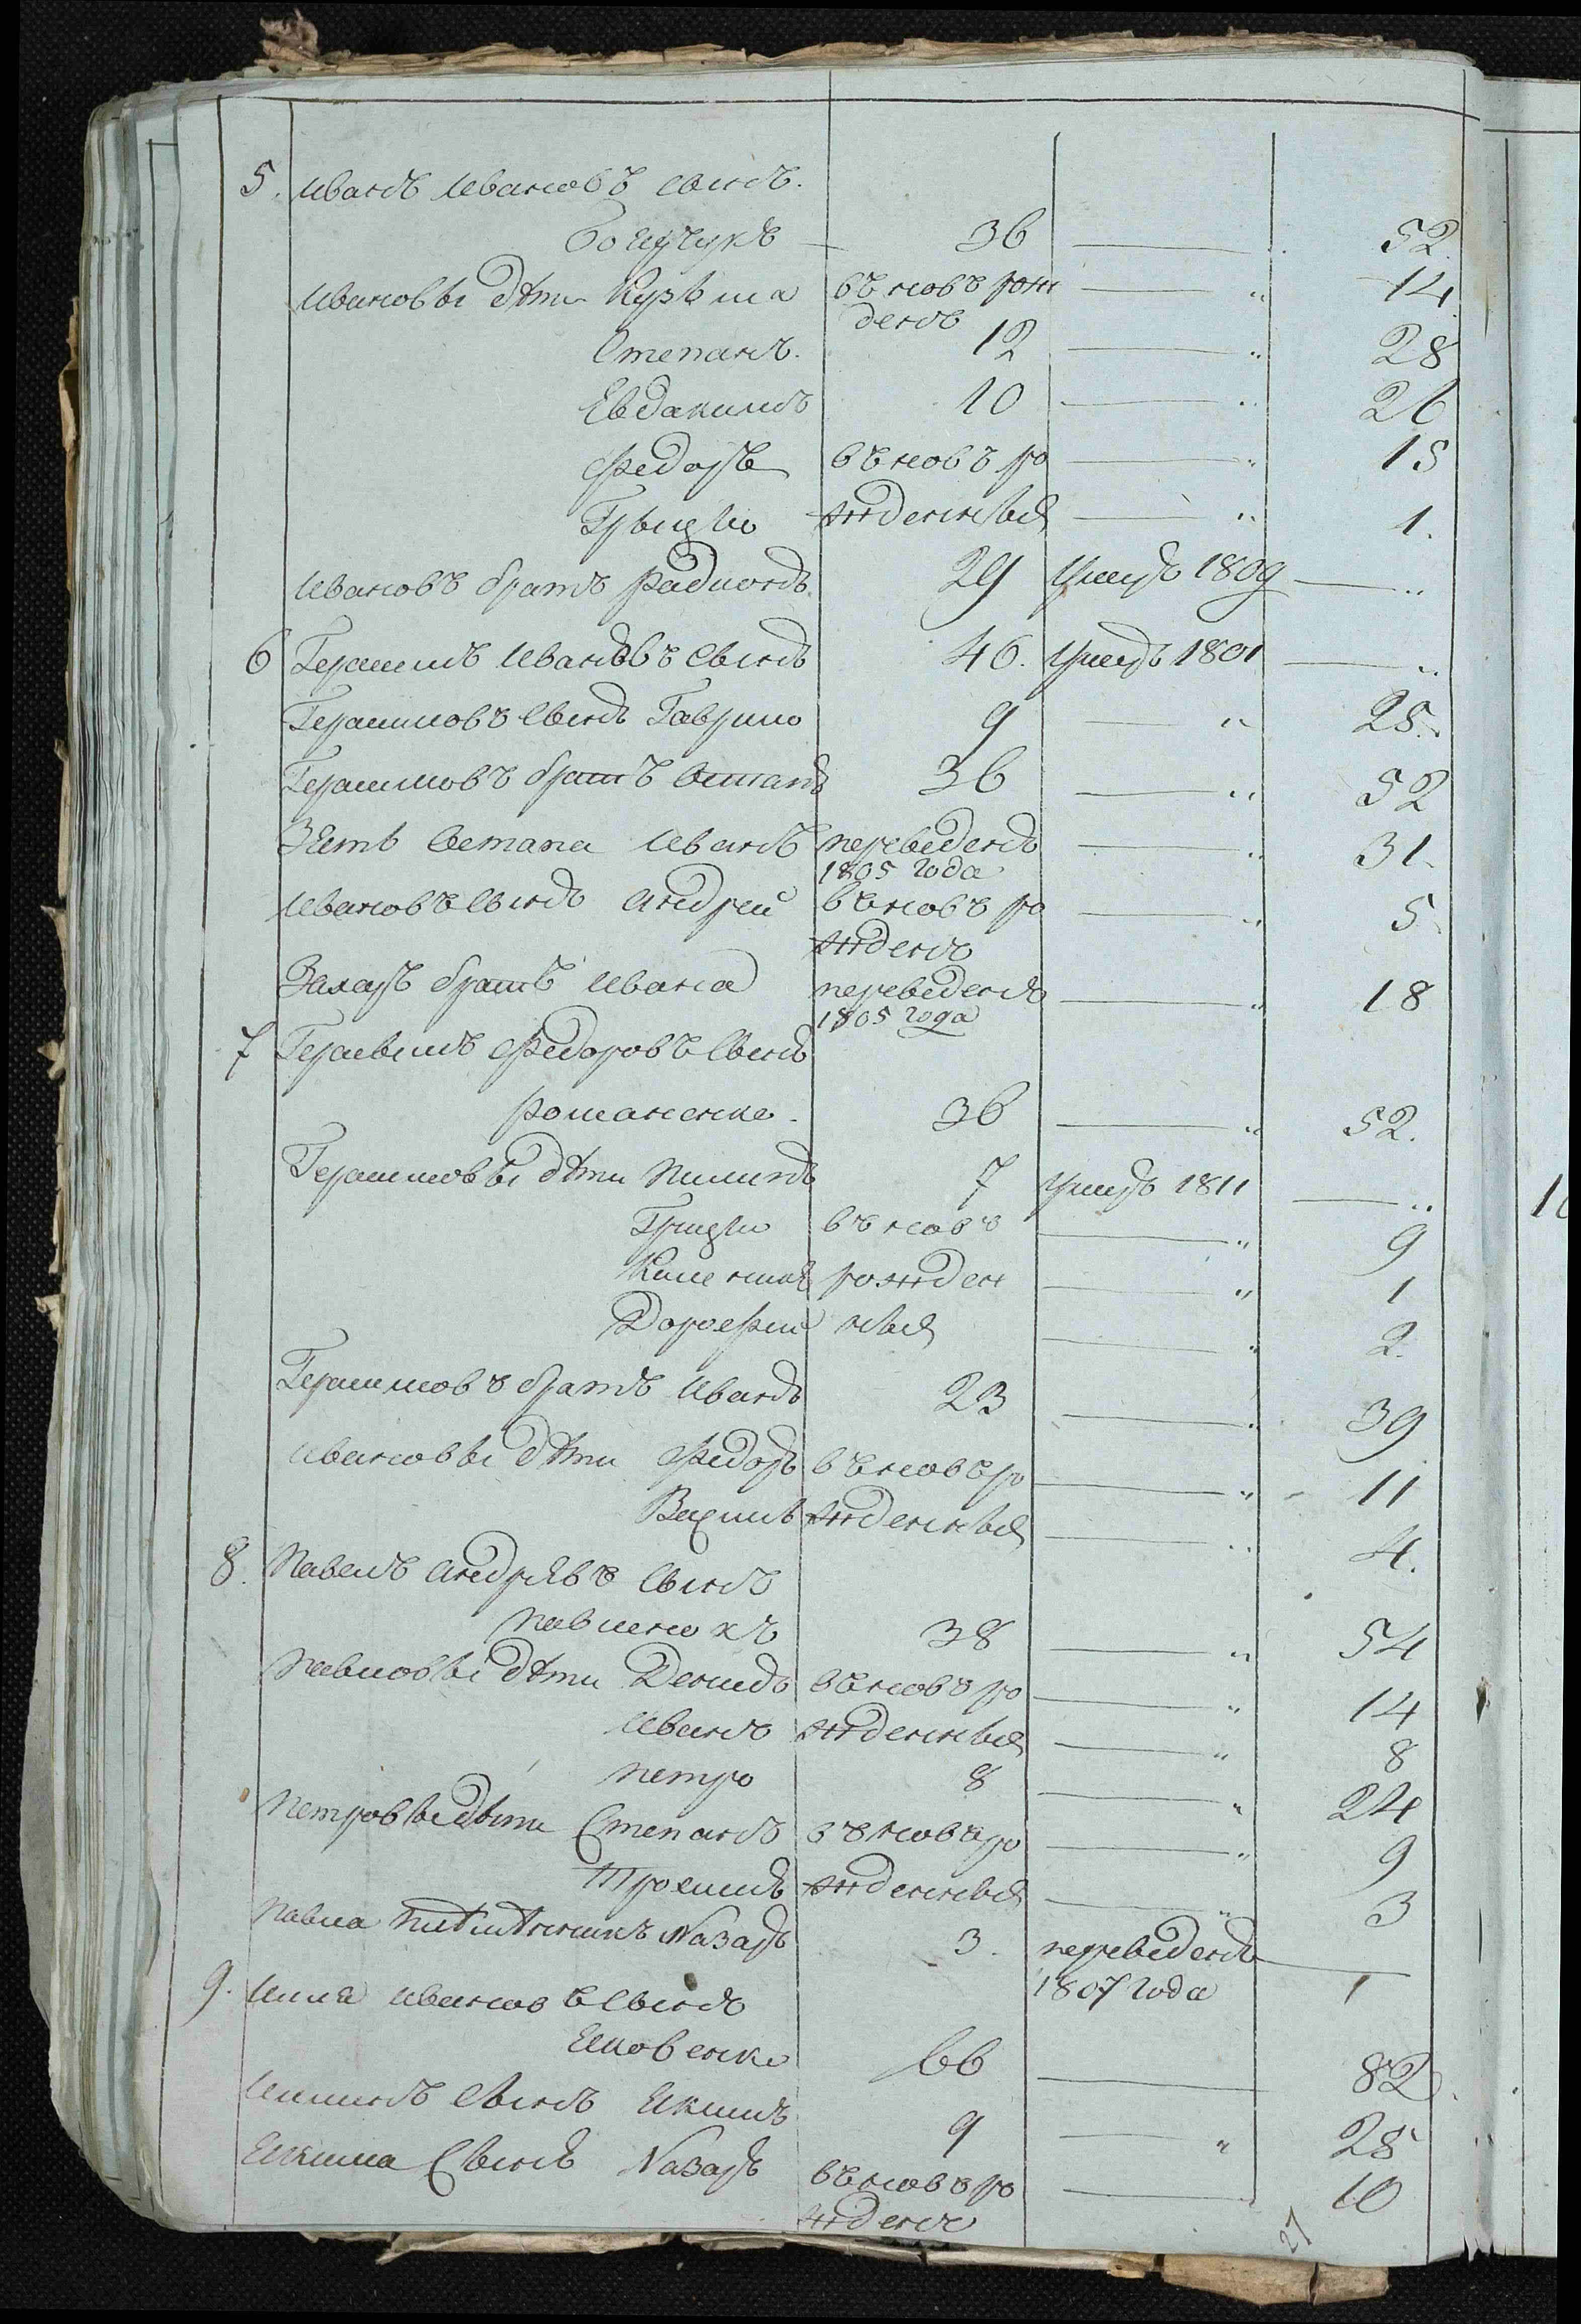 5. Иванъ Ивановъ сынъ.
Бощукъ 36 52.
Ивановы дѣти Кузьма въновь рож " 14
денъ
Степанъ. 12 " 28
Евдакимъ 10 " 26
Федоръ въновъ ро " 15
Грыцко жденныя " 1.
Ивановъ братъ Радионъ 29 умеръ 1809 "
6 Герасимъ Ивановъ сынъ 46. умеръ 1801 "
Герасимовъ сынъ Гаврило 9 " 25.
Герасимовъ братъ Остапъ 36 " 52
Зять Остапа Иванъ переведенъ " 31.
1805 года
Ивановъ сынъ Андрей въновъ ро " 5
жденъ
Захаръ братъ Ивана переведенъ " 18
1805 года
7 Герасимъ Федоровъ сынъ
Романенко. 36 " 52.
Герасимовы дѣти Пилипъ 7 умеръ 1811 "
Грицко въновъ " 9
Климентий рожден " 1
Дорофии ныя " 2.
Герасимовъ братъ Иванъ 23 " 39
Ивановы дѣти Федоръ въновъ ро " 11
Василь жденныя " 4.
8. Павелъ Андрѣевъ сынъ
Павленокъ 38 " 54
Павловы дѣти Демидъ въновъ ро " 14
Иванъ жденныя " 8
Петро 8 " 24
Петровы дѣти Степанъ въновъ ро " 9
Трохимъ жденныя " 3
Павла племѣнникъ Назаръ 3. переведенъ
1807 года 1
9. Илля Ивановъ сынъ
Яковенко 66 82
Иллинъ сынъ Якимъ 9 " 25
Якима сынъ Назаръ въновъ ро 10
жденъ
27